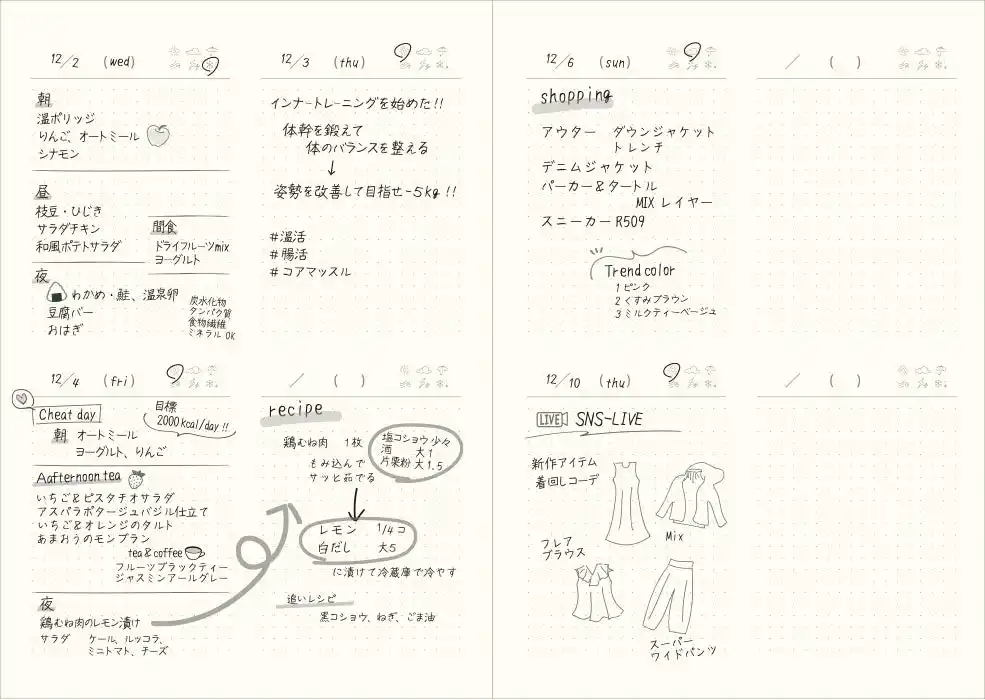 12/2 (wed)
朝
温ポリッジ
りんご、オートミール
シナモン
昼
枝豆・ひじき
サラダチキン
和風ポテトサラダ
間食
ドライフルーツmix
ヨーグルト
夜
わかめ・鮭、温泉卵
豆腐バー
おはぎ
炭水化物
タンパク質
食物繊維
ミネラル OK
12/3 (thu)
インナートレーニングを始めた!!
体幹を鍛えて
体のバランスを整える
↓
姿勢を改善して目指せ-5kg !!
#温活
#腸活
#コアマッスル
12/4 (fri)
Cheat day
目標
2000kcal/day !!
朝 オートミール
ヨーグルト、りんご
Aafternoon tea
いちご&ピスタチオサラダ
アスパラポタージュバジル仕立て
いちご&オレンジのタルト
あまおうのモンブラン
tea&coffee
フルーツブラックティー
ジャスミンアールグレー
夜
鶏むね肉のレモン漬け
サラダ ケール、ルッコラ、
ミニトマト、チーズ
/ ( )
recipe
鶏むね肉 1枚
塩コショウ少々
酒 大1
片栗粉 大1.5
もみ込んで
サッと茹でる
レモン 1/4コ
白だし 大5
に漬けて冷蔵庫で冷やす
追いレシピ
黒コショウ、ねぎ、ごま油
12/6 (sun)
shopping
アウター ダウンジャケット
トレンチ
デニムジャケット
パーカー&タートル
MIX レイヤー
スニーカー R509
Trend color
1 ピンク
2 くすみブラウン
3 ミルクティーベージュ
/ ( )
12/10 (thu)
LIVE SNS-LIVE
新作アイテム
着回しコーデ
Mix
フレア
ブラウス
スーパー
ワイドパンツ
/ ( )